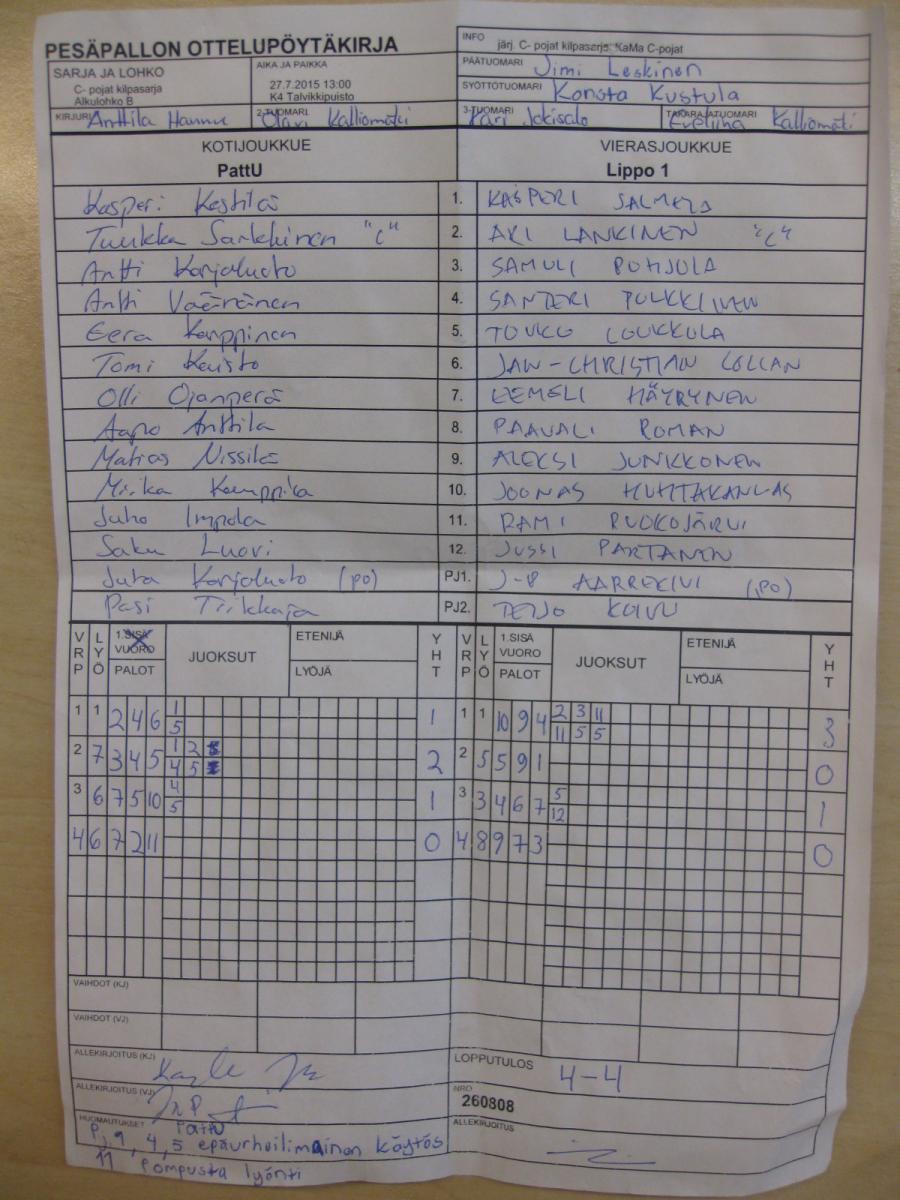 PESÄPALLON OTTELUPÖYTÄKIRJA
INFO
järj. C- pojat kilpasarja, KaMa C-pojat
SARJA JA LOHKO
C- pojat kilpasarja
Alkulohko B
AIKA JA PAIKKA
27.7.2015 13:00
K4 Talvikkipuisto
PÄÄTUOMARI Jimi Leskinen
SYÖTTÖTUOMARI Konsta Kustula
KIRJURI Anttila Hannu
2-TUOMARI Olavi Kalliomäki
3-TUOMARI Kari Jokisalo
TAKARAJATUOMARI Eveliina Kalliomäki
KOTIJOUKKUE VIERASJOUKKUE
PattU Lippo 1
Kasperi Kestilä 1. KASPERI SALMELA
Tuukka Sarkkinen "C" 2. AKI LANKINEN "C"
Antti Karjaluoto 3. SAMULI POHJOLA
Antti Väänänen 4. SANTERI PULKKINEN
Eera Karppinen 5. TOUKO LOUKKOLA
Tomi Kaisto 6. JAN-CHRISTIAN COLLAN
Olli Ojanperä 7. EEMELI HÄYRYNEN
Aapo Anttila 8. PAAVALI ROMAN
Matias Nissilä 9. ALEKSI JUNKKONEN
Miika Kamppila 10. JOONAS HUHTAKANGAS
Juho Impola 11. RAMI RUOKOJÄRVI
Saku Luovi 12. JUSSI PARTANEN
Juha Karjaluoto (po) PJ1. J-P AARREKIVI (po)
Pasi Tiikkaja PJ2. TEIJO KOIVU
VRP LYÖ 1.SISÄ VUORO PALOT JUOKSUT ETENIJÄ LYÖJÄ YHT VRP LYÖ 1.SISÄ VUORO PALOT JUOKSUT ETENIJÄ LYÖJÄ YHT
1 1 2 4 6 1 1 1 1 10 9 4 2 3 11 3
5 11 5 5
2 7 3 4 5 1 2 2 2 5 5 9 1 0
4 5
3 6 7 5 10 4 1 3 3 4 6 7 5 1
5 12
4 6 7 2 11 0 4 8 9 7 3 0
VAIHDOT (KJ)
VAIHDOT (VJ)
ALLEKIRJOITUS (KJ)
LOPPUTULOS 4-4
ALLEKIRJOITUS (VJ)
NRO
260808
HUOMAUTUKSET
ALLEKIRJOITUS
PattU
P, 9, 4, 5 epäurheilimainen käytös
11 pompusta lyönti